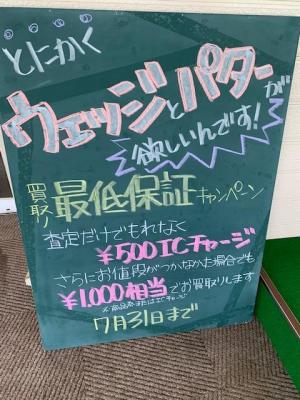 とにかく
ウェッジとパターが
欲しいんです!
買取最低保証キャンペーン
査定だけでもれなく
¥500 ICチャージ
さらにお値段がつかなかった場合でも
¥1,000相当でお買取りします
7月31日まで